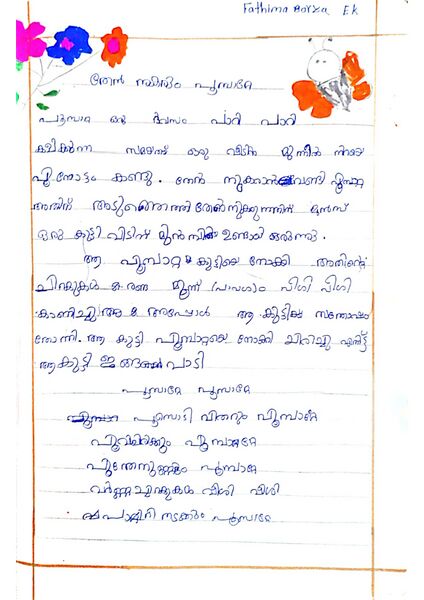 Fathima Borza E.K
തേൻ നുകരും പൂമ്പാറ്റേ
പൂമ്പാറ്റ ഒരു ദിവസം പാറി പാറി
കളിക്കുന്ന സമയത്ത് ഒരു വീടിൻ മുന്നിൽ നിറയെ
പൂന്തോട്ടം കണ്ടു. തേൻ നുകരാൻ വേണ്ടി പൂമ്പാറ്റ
അതിന് അടുത്തെത്തി തേൻ നുകരുന്നതിന് മുമ്പ്
ഒരു കുട്ടി വീടിന് മുൻപിൽ ഉണ്ടായിരുന്നു.
ആ പൂമ്പാറ്റ കുട്ടിയെ നോക്കി അതിന്റെ
ചിറകുകൾ രണ്ടു മൂന്ന് പ്രാവശ്യം വീശി വീശി
കാണിച്ചു അപ്പോൾ ആ കുട്ടിക്ക് സന്തോഷം
തോന്നി. ആ കുട്ടി പൂമ്പാറ്റയെ നോക്കി ചിരിച്ചു എന്നിട്ട്
ആ കുട്ടി ഇങ്ങനെ പാടി
പൂമ്പാറ്റേ പൂമ്പാറ്റേ
പൂമ്പൊടി വിതറും പൂമ്പാറ്റേ
പൂവിലിരിക്കും പൂമ്പാറ്റേ
പൂന്തേനുണ്ണും പൂമ്പാറ്റേ
വർണ്ണചിറകുകൾ വീശി വീശി
പാറി നടക്കും പൂമ്പാറ്റേ